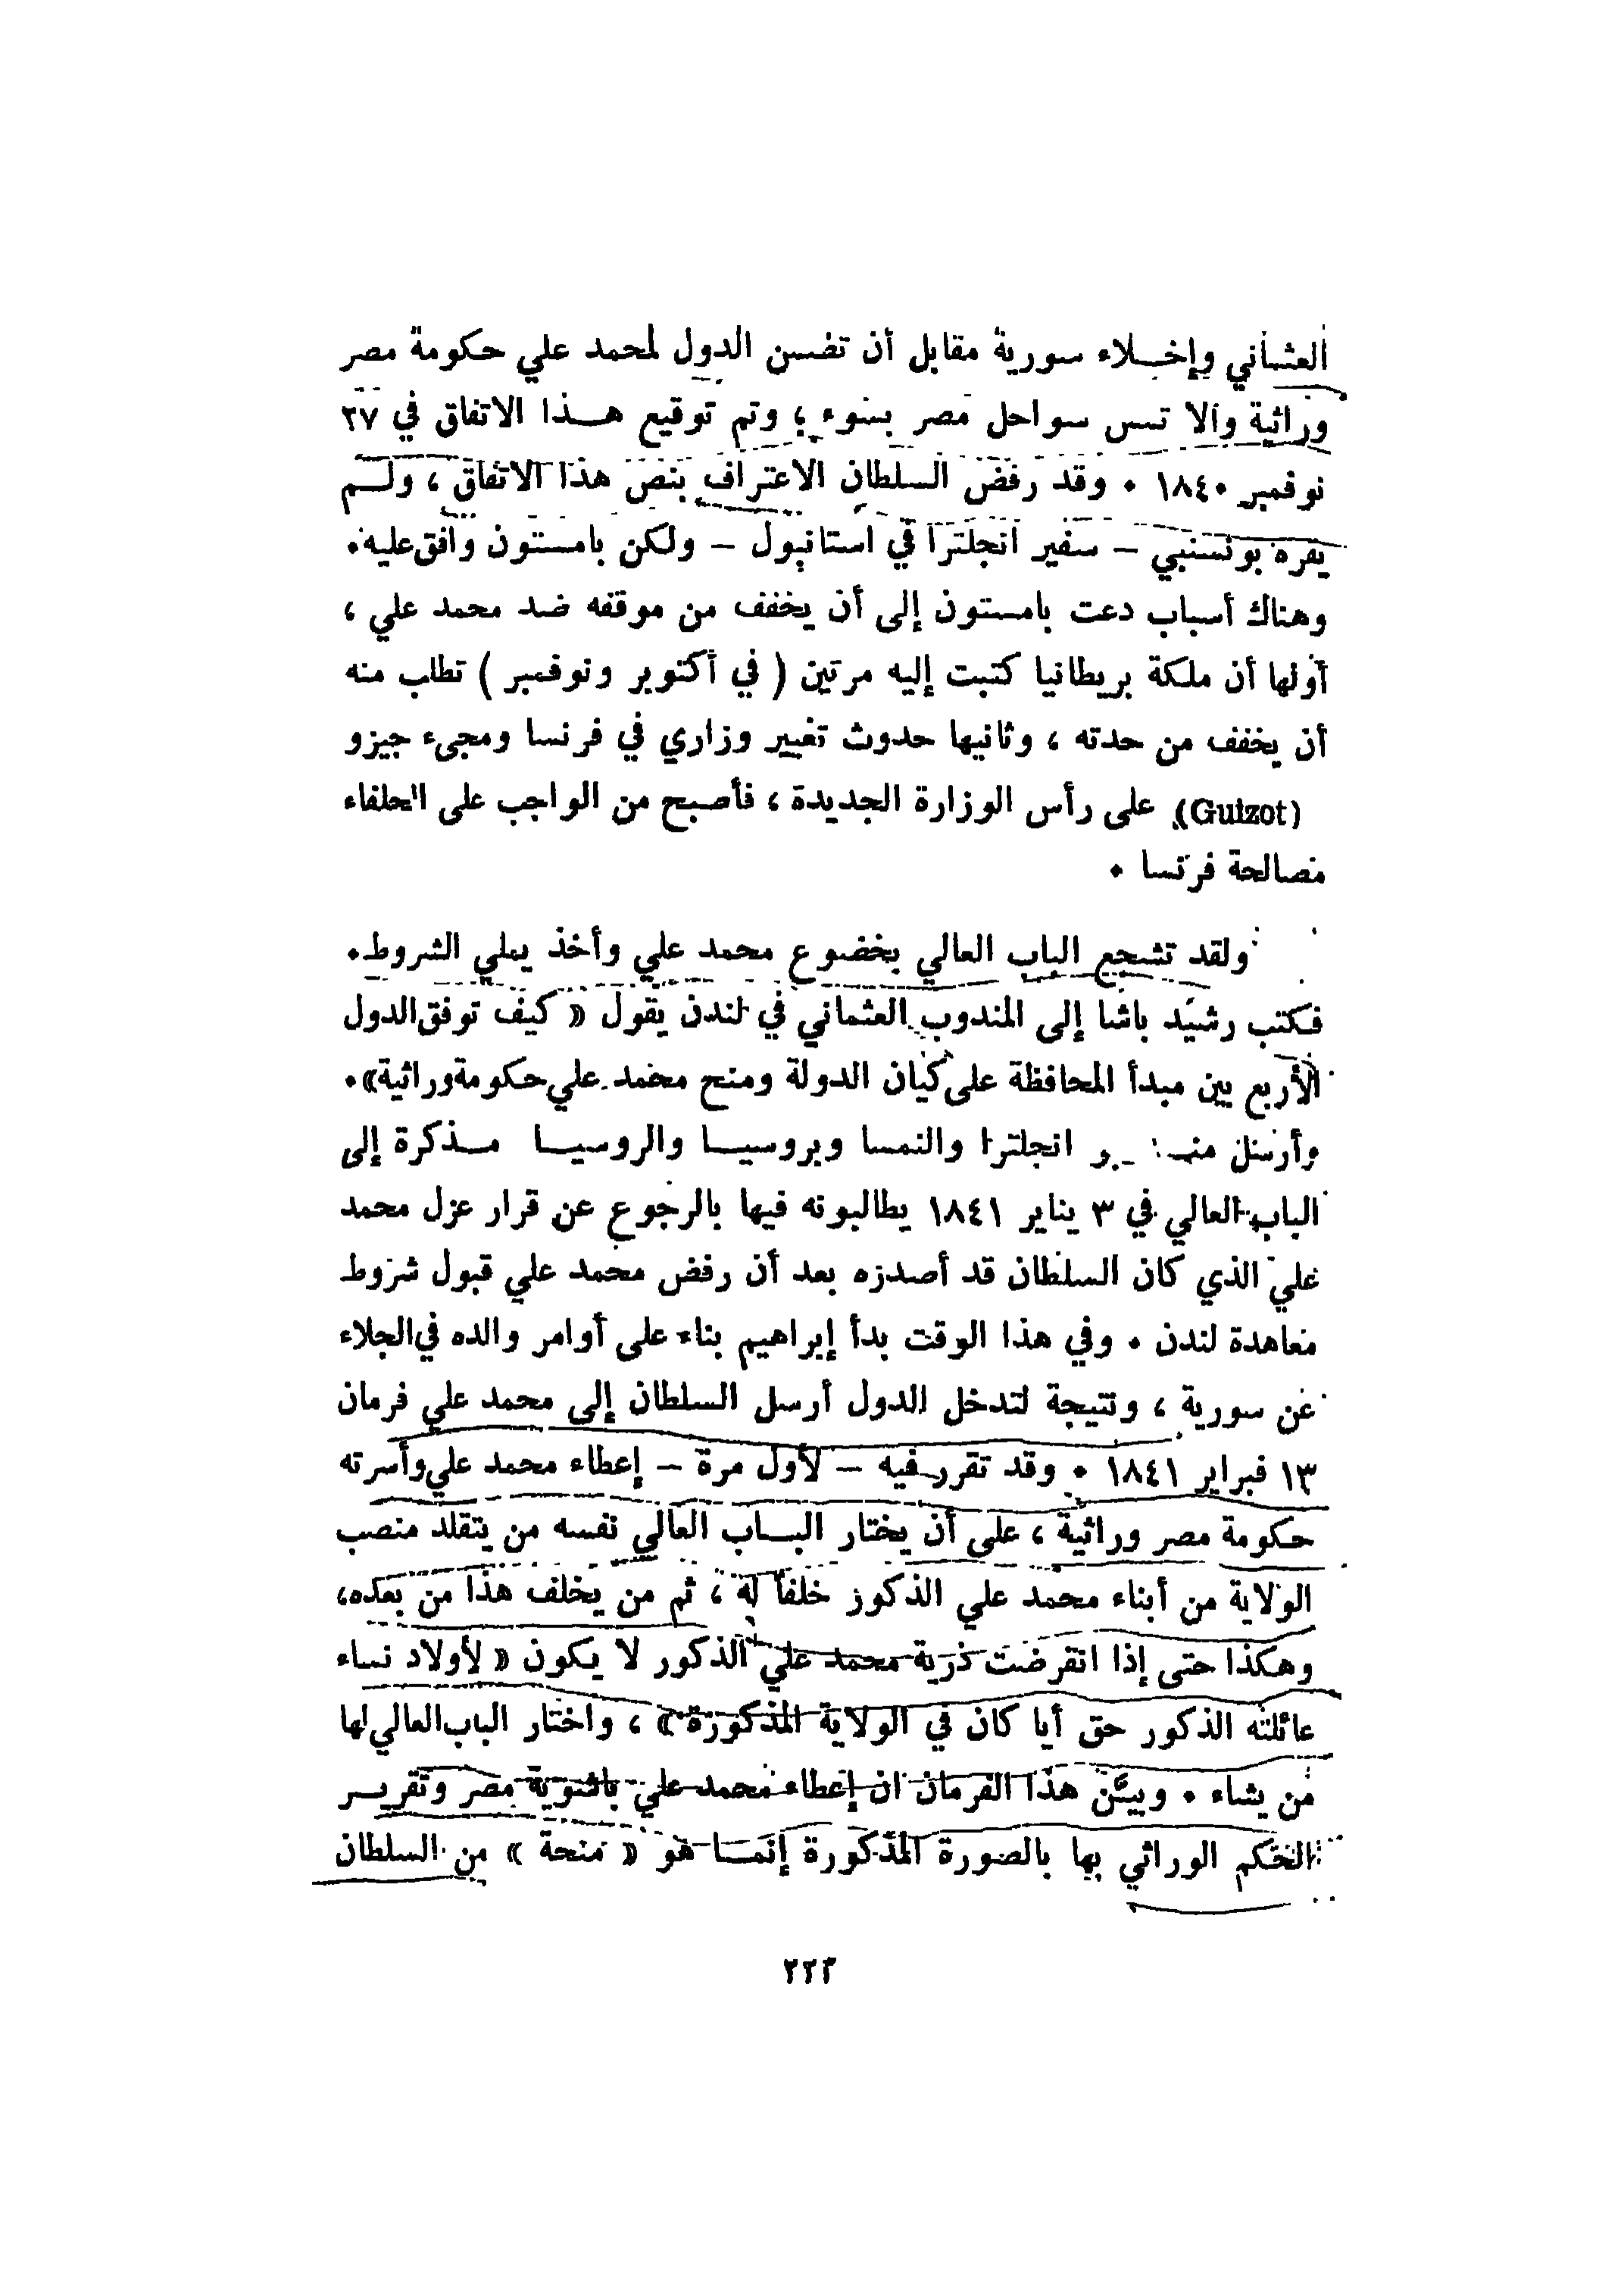 العثماني وإخلاء سورية مقابل أن تضمن الدول لمحمد علي حكومة مصر
وراثية وألا تمس سواحل مصر بسوء ؛ وتم توقيع هذا الاتفاق في ٢٧
نوفمبر ١٨٤٠ . وقد رفض السلطان الاعتراف بنص هذا الاتفاق ، ولم
يقره بونسنبي – سفير انجلترا في استانبول – ولكن بامستون وافق عليه .
وهناك أسباب دعت بامستون إلى أن يخفف من موقفه ضد محمد علي ،
أولها أن ملكة بريطانيا كتبت إليه مرتين ( في أكتوبر ونوفمبر ) تطلب منه
أن يخفف من حدته ، وثانيها حدوث تغيير وزاري في فرنسا ومجيء جيزو
(Guizot) على رأس الوزارة الجديدة ، فأصبح من الواجب على الحلفاء
مصالحة فرنسا .
ولقد تشجع الباب العالي بخضوع محمد علي وأخذ يملي الشروط .
فكتب رشيد باشا إلى المندوب العثماني في لندن يقول « كيف توفق الدول
الأربع بين مبدأ المحافظة على كيان الدولة ومنح محمد علي حكومة وراثية » .
وأرسل انجلترا والنمسا وبروسيا والروسيا مذكرة إلى
الباب العالي في ٣ يناير ١٨٤١ يطالبونه فيها بالرجوع عن قرار عزل محمد
علي الذي كان السلطان قد أصدره بعد أن رفض محمد علي قبول شروط
معاهدة لندن . وفي هذا الوقت بدأ إبراهيم بناء على أوامر والده في الجلاء
عن سورية ، ونتيجة لتدخل الدول أرسل السلطان إلى محمد علي فرمان
١٣ فبراير ١٨٤١ . وقد تقرر فيه – لأول مرة – إعطاء محمد علي وأسرته
حكومة مصر وراثية ، على أن يختار الباب العالي نفسه من يتقلد منصب
الولاية من أبناء محمد علي الذكور خلفاً له ، ثم من يخلف هذا من بعده ،
وهكذا حتى إذا انقرضت ذرية محمد علي الذكور لا يكون « لأولاد نساء
عائلته الذكور حق أيا كان في الولاية المذكورة » ، واختار الباب العالي لها
من يشاء . وبيَّن هذا الفرمان ان إعطاء محمد علي باشوية مصر وتقرير
الحكم الوراثي بها بالصورة المذكورة إنما هو « منحة » من السلطان
٢٢٣